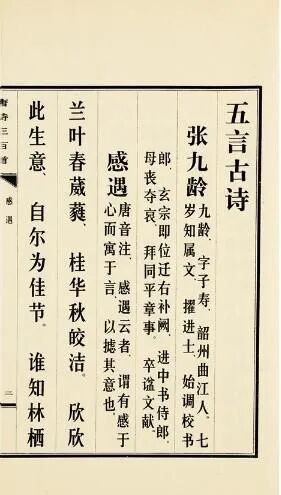 五言古诗
张九龄
九龄，字子寿，韶州曲江人。七
岁知属文，擢进士，始调校书
郎，玄宗即位迁右补阙，进中书侍郎，
母丧夺哀，拜同平章事。卒谥文献。
感遇
唐音注，感遇云者，谓有感于
心而寓于言，以摅其意也。
兰叶春葳蕤，桂华秋皎洁。欣欣
此生意，自尔为佳节。谁知林栖
唐诗三百首
感遇
二